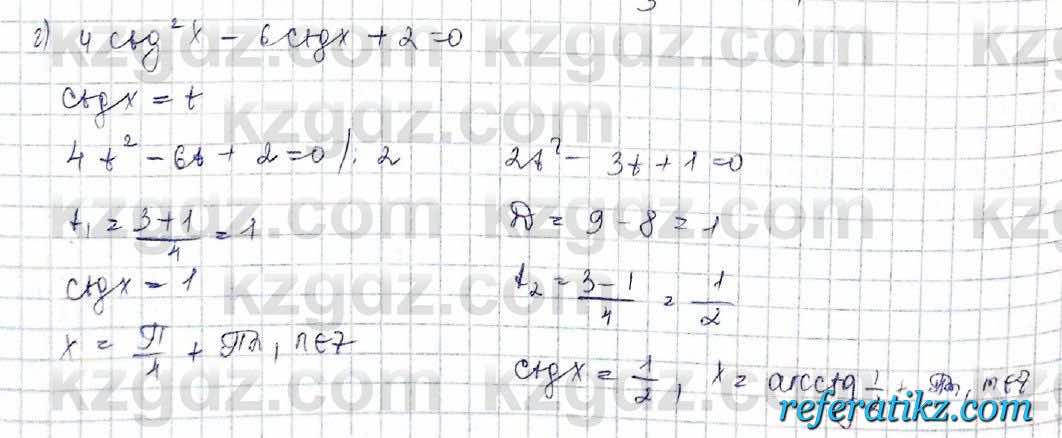 г) 4 ctg²x - 6ctgx + 2 = 0
ctgx = t
4t² - 6t + 2 = 0 /: 2
2t² - 3t + 1 = 0
t₁ = (3+1)/4 = 1
D = 9 - 8 = 1
ctgx = 1
t₂ = (3-1)/4 = 1/2
x = π/4 + πn, n∈Z
ctgx = 1/2, x = arcctg 1/ + πn, n∈Z
kzgdz.com
referatikz.com